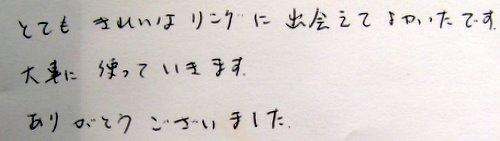 とても きれいな リングに 出会えて よかったです。
大事に 使って いきます。
ありがとう ございました。